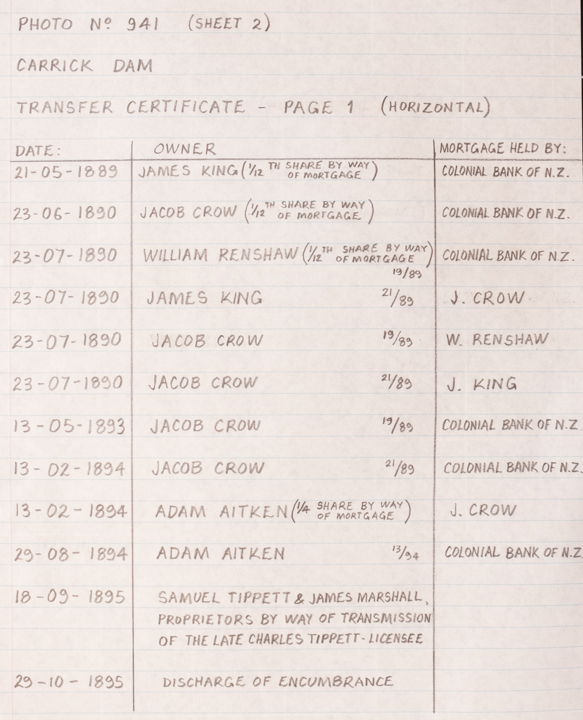 PHOTO Nº 941 (SHEET 2)
CARRICK DAM
TRANSFER CERTIFICATE - PAGE 1 (HORIZONTAL)
DATE: OWNER MORTGAGE HELD BY:
21-05-1889 JAMES KING (1/12 TH SHARE BY WAY OF MORTGAGE) COLONIAL BANK OF N.Z.
23-06-1890 JACOB CROW (1/12 TH SHARE BY WAY OF MORTGAGE) COLONIAL BANK OF N.Z.
23-07-1890 WILLIAM RENSHAW (1/12 TH SHARE BY WAY OF MORTGAGE) COLONIAL BANK OF N.Z.
19/89
23-07-1890 JAMES KING 21/89 J. CROW
23-07-1890 JACOB CROW 19/89 W. RENSHAW
23-07-1890 JACOB CROW 21/89 J. KING
13-05-1893 JACOB CROW 19/89 COLONIAL BANK OF N.Z
13-02-1894 JACOB CROW 21/89 COLONIAL BANK OF N.Z.
13-02-1894 ADAM AITKEN (1/4 SHARE BY WAY OF MORTGAGE) J. CROW
29-08-1894 ADAM AITKEN 13/94 COLONIAL BANK OF N.Z
18-09-1895 SAMUEL TIPPETT & JAMES MARSHALL,
PROPRIETORS BY WAY OF TRANSMISSION
OF THE LATE CHARLES TIPPETT-LICENSEE
29-10-1895 DISCHARGE OF ENCUMBRANCE